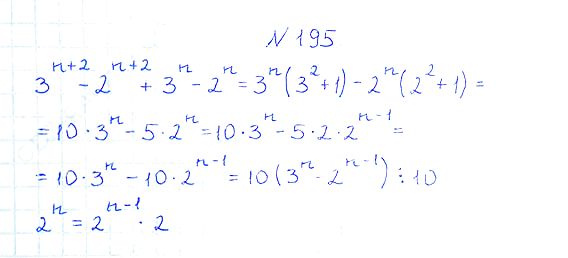 N 195
3ⁿ⁺² - 2ⁿ⁺² + 3ⁿ - 2ⁿ = 3ⁿ(3² + 1) - 2ⁿ(2² + 1) =
= 10 · 3ⁿ - 5 · 2ⁿ = 10 · 3ⁿ - 5 · 2 · 2ⁿ⁻¹ =
= 10 · 3ⁿ - 10 · 2ⁿ⁻¹ = 10(3ⁿ - 2ⁿ⁻¹) ⋮ 10
2ⁿ = 2ⁿ⁻¹ · 2